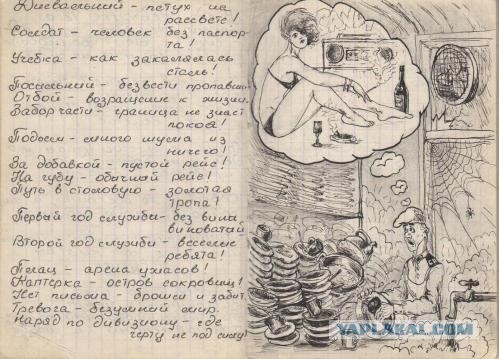 Дневальный - петух на
рассвете!
Солдат - человек без паспор-
та!
Учебка - как закалялась
сталь!
Посыльный - безвести пропавший
Отбой - возвращение к жизни.
Забор части - граница не знает
покоя!
Подъем - много шума из
ничего!
За добавкой - пустой рейс!
На губу - обычный рейс!
Путь в столовую - золотая
тропа!
Первый год службы - без вины
виноватый
Второй год службы - веселые
ребята!
Плац - арена ужасов!
Каптерка - остров сокровищ!
Нет письма - бросил и забыт.
Тревога - безумный мир.
Наряд по дивизиону - где
черту не под силу!
YAPLAKAL.COM